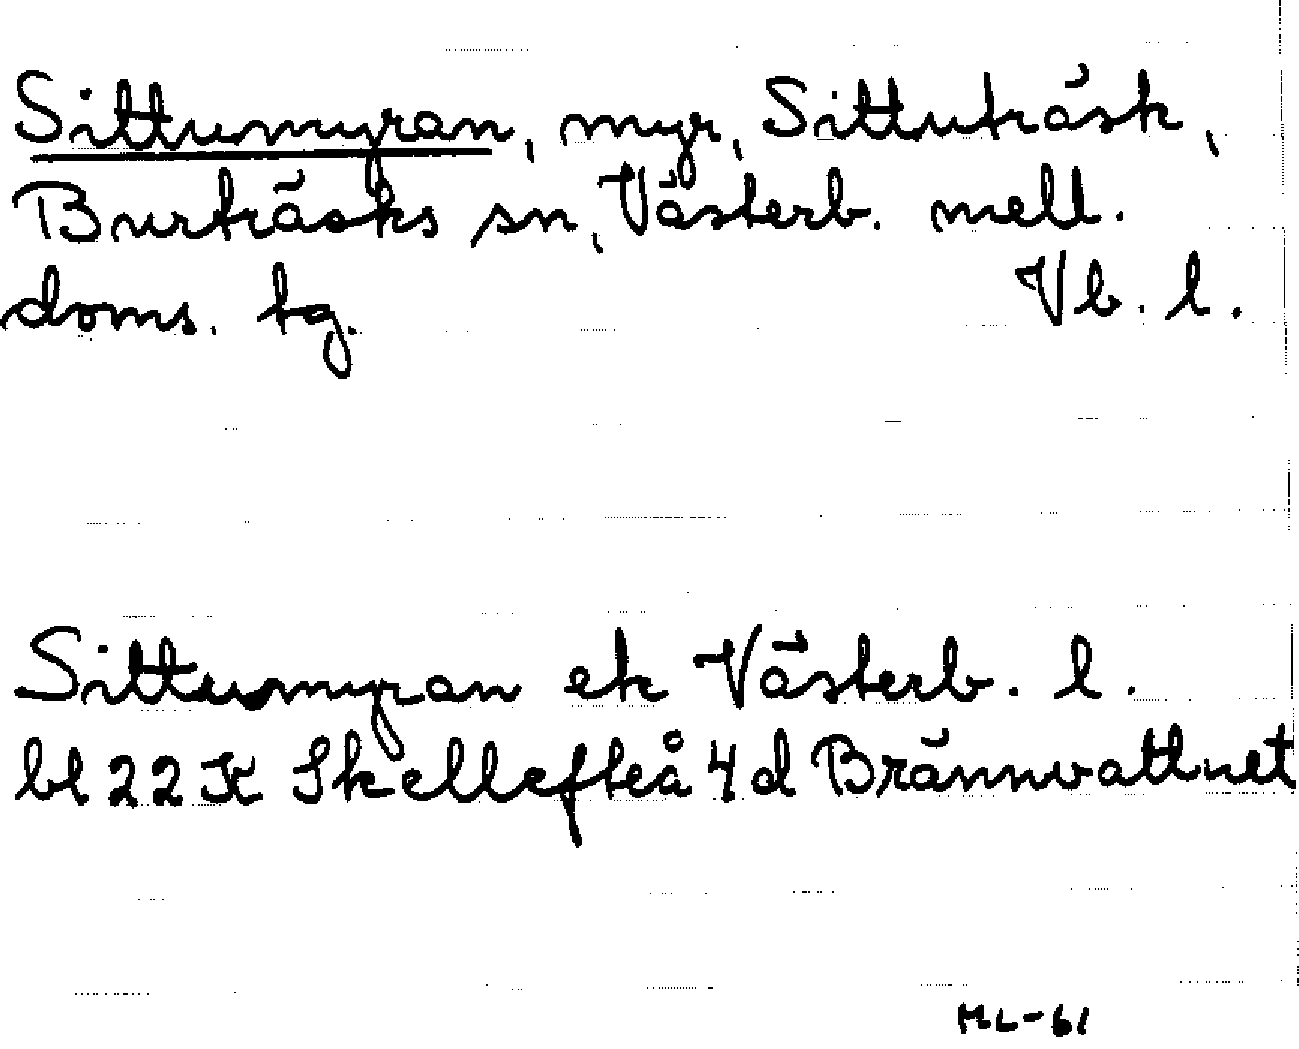 Sittumyran, myr, Sittuträsk,
Burträsks sn, Västerb. mell.
doms. tg. Vb. l.
Sittumyran ek Västerb. l.
bl 22 K Skellefteå 4 d Brännvattnet
ML-61